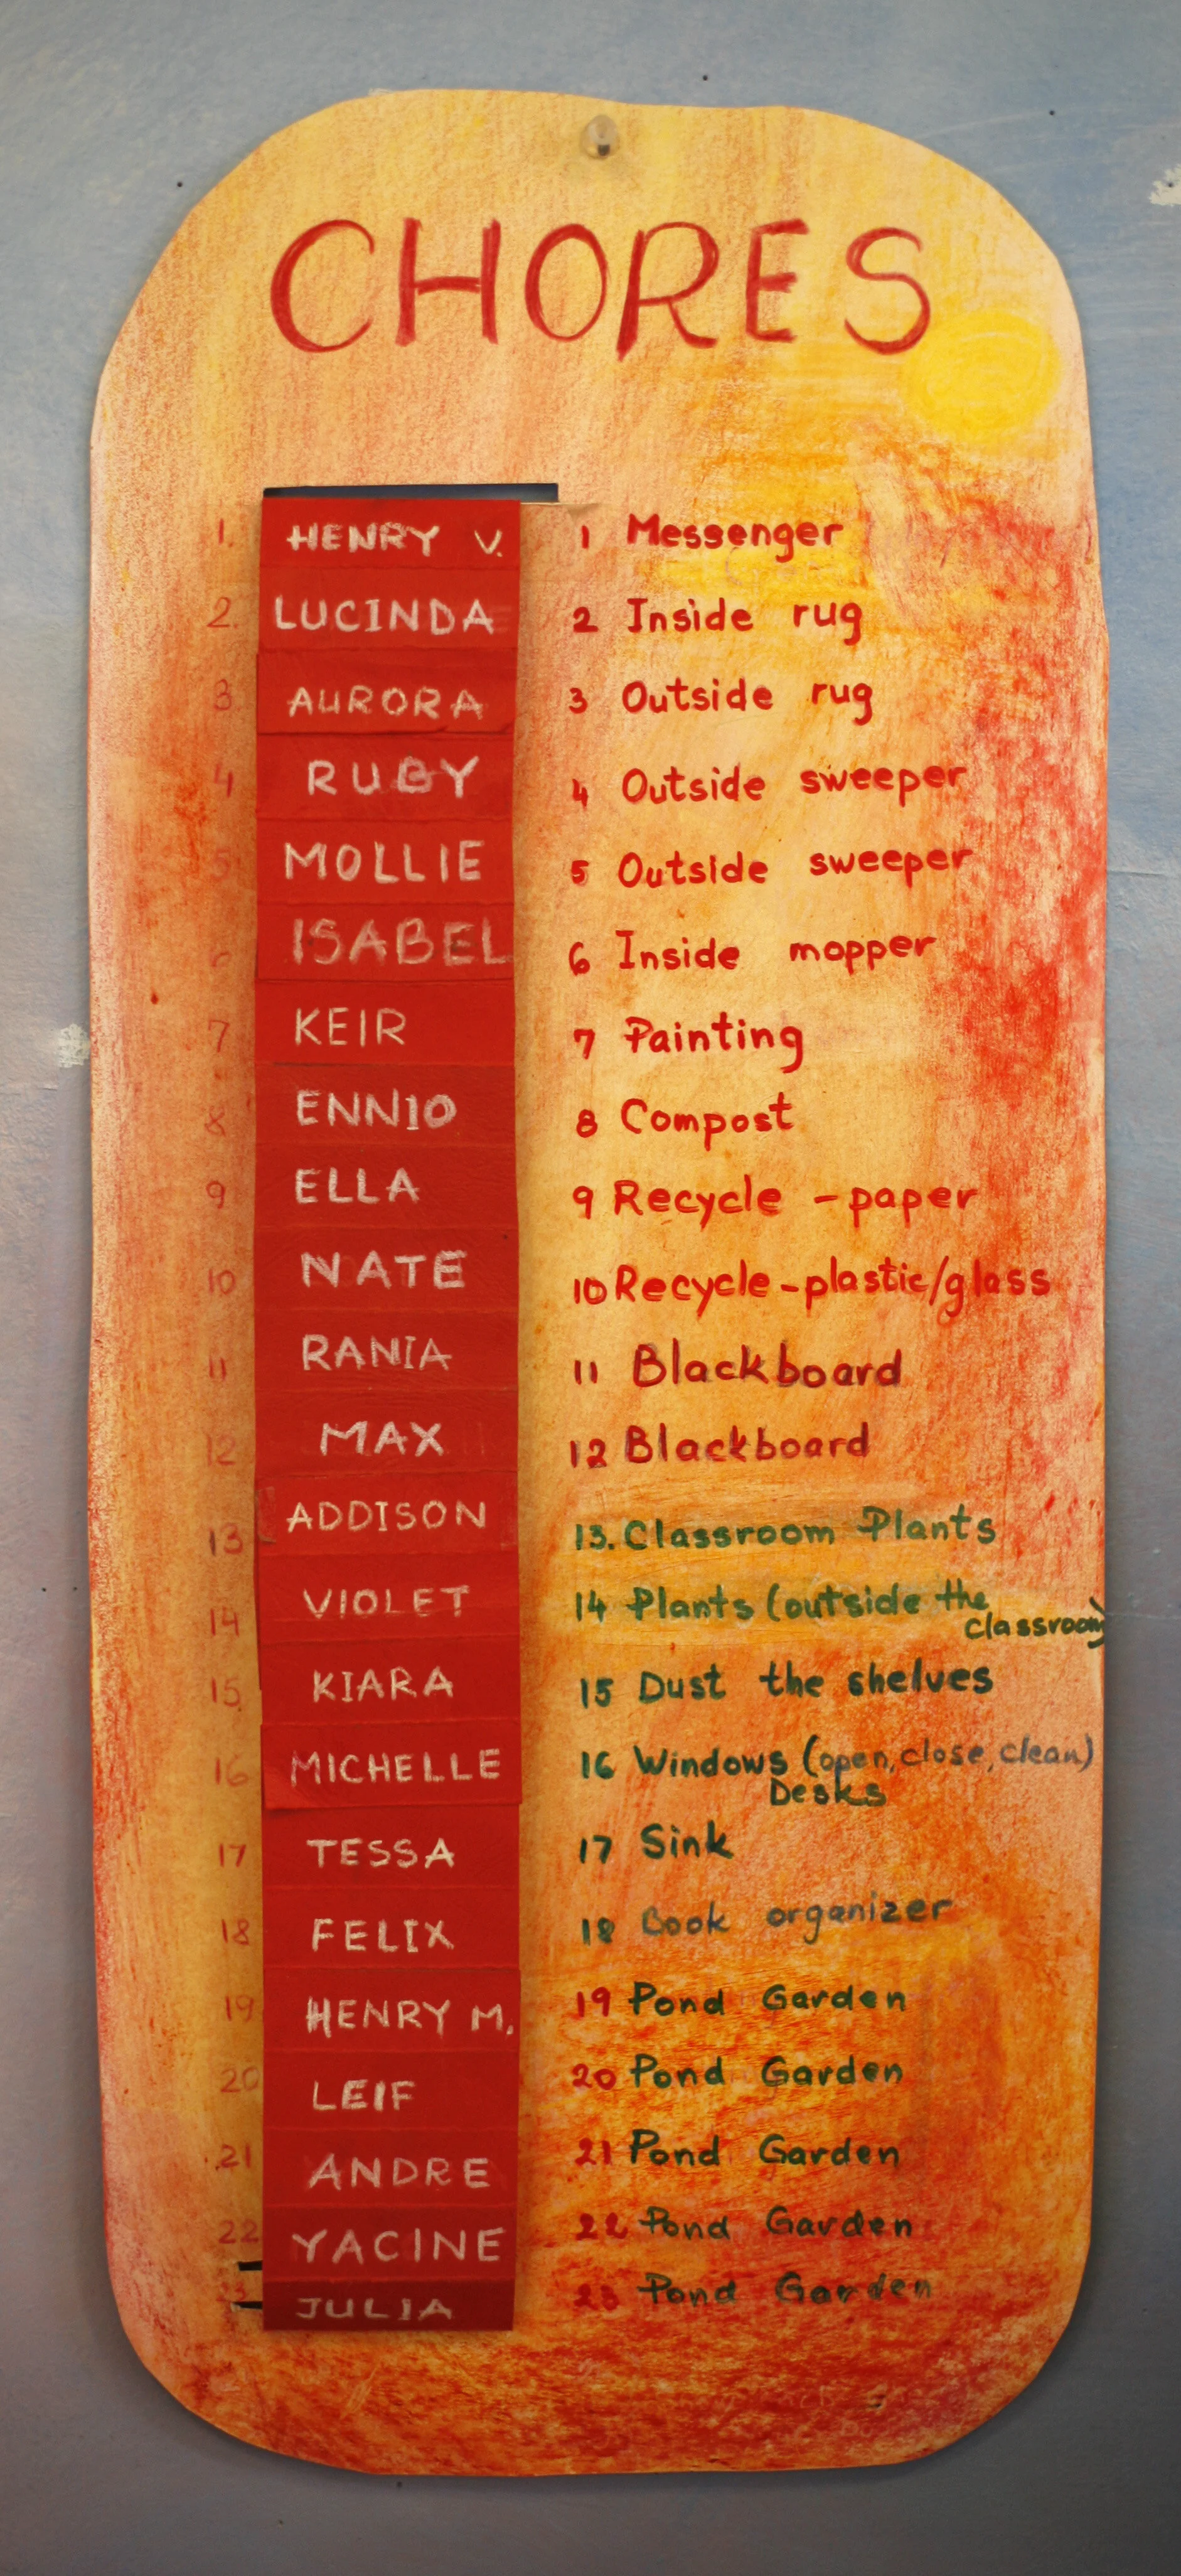 CHORES
1. HENRY V. 1 Messenger
2. LUCINDA 2 Inside rug
3 AURORA 3 Outside rug
4 RUBY 4 Outside sweeper
5 MOLLIE 5 Outside sweeper
6 ISABEL 6 Inside mopper
7 KEIR 7 Painting
8 ENNIO 8 Compost
9 ELLA 9 Recycle - paper
10 NATE 10 Recycle - plastic/glass
11 RANIA 11 Blackboard
12 MAX 12 Blackboard
13 ADDISON 13. Classroom Plants
14 VIOLET 14 Plants (outside the
classroom)
15 KIARA 15 Dust the shelves
16 MICHELLE 16 Windows (open, close, clean)
Desks
17 TESSA 17 Sink
18 FELIX 18 Book organizer
19 HENRY M. 19 Pond Garden
20 LEIF 20 Pond Garden
21 ANDRE 21 Pond Garden
22 YACINE 22 Pond Garden
23 JULIA 23 Pond Garden